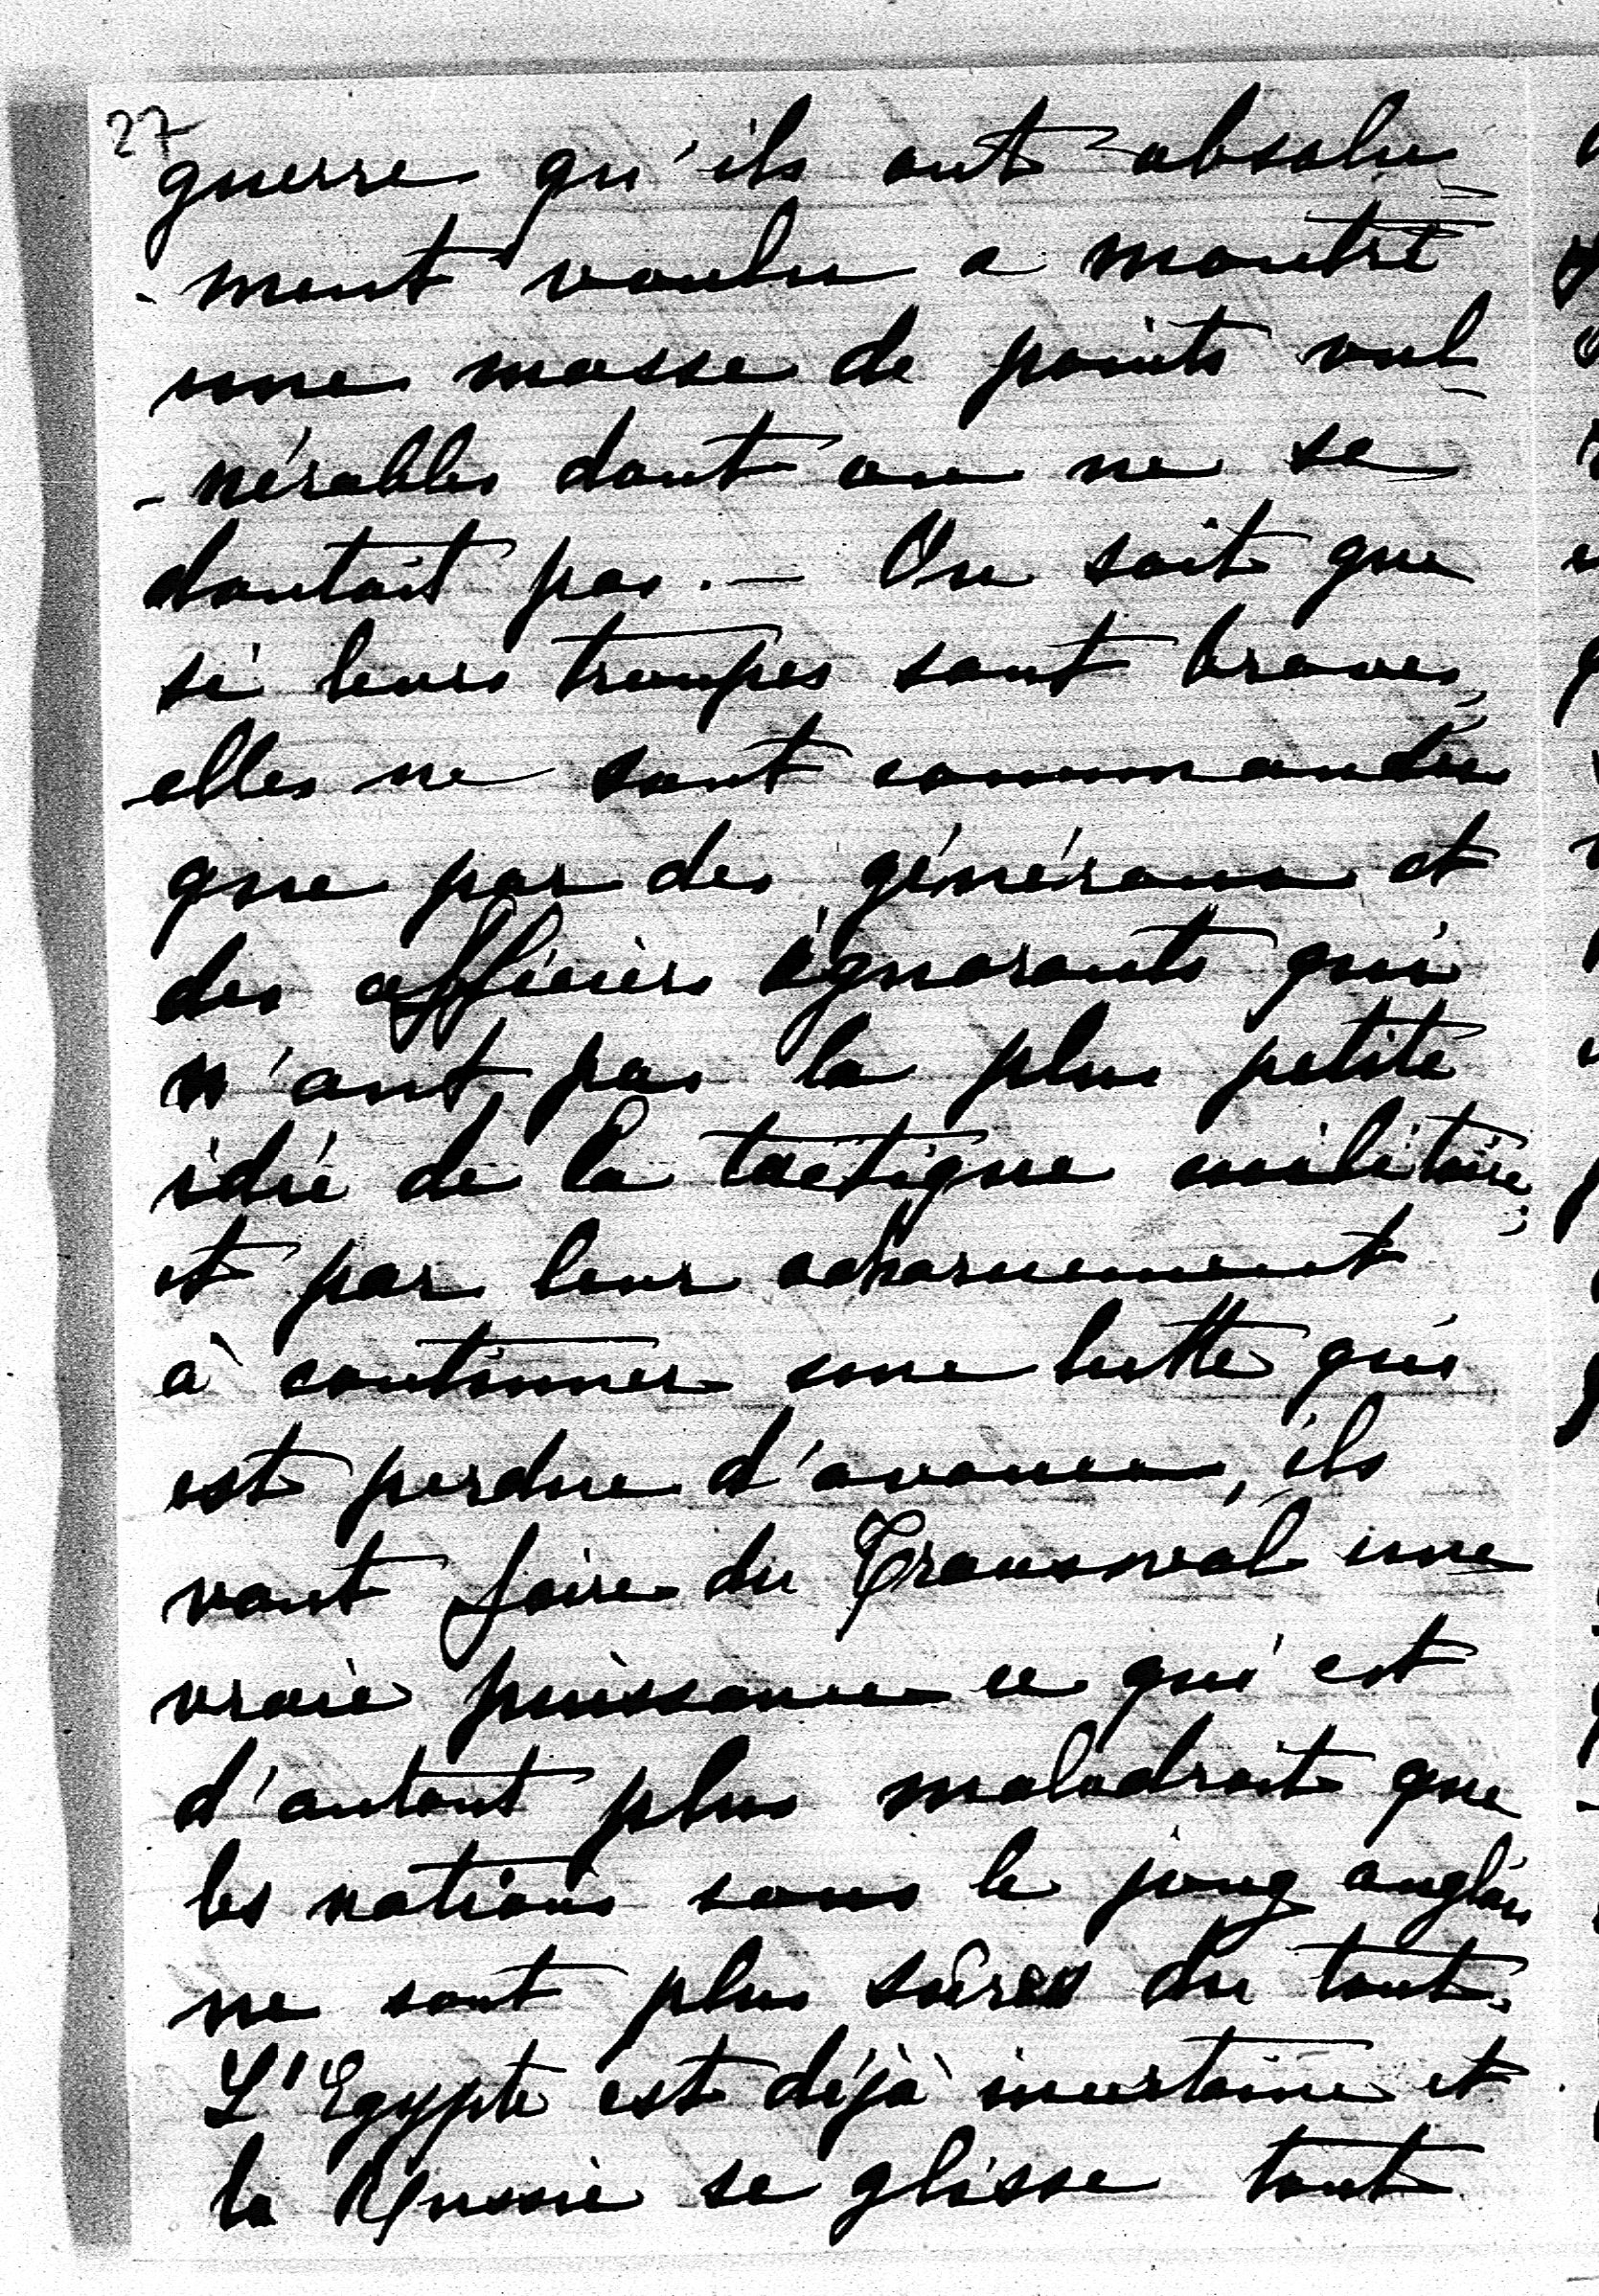 27
guerre qu'ils ont absolu-
-ment voulu a montré
une masse de points vul-
-nérables dont on ne se
doutait pas. — On sait que
si leurs troupes sont braves,
elles ne sont commandées
que par des généraux et
des officiers ignorants qui
n'ont pas la plus petite
idée de la tactique militaire;
et par leur acharnement
à continuer une lutte qui
est perdue d'avance, ils
vont faire du Transwal une
vraie puissance ce qui est
d'autant plus maladroit que
les nations sous le joug anglais
ne sont plus sûres du tout.
L'Egypte est déjà incertaine et
la Russie se glisse tout